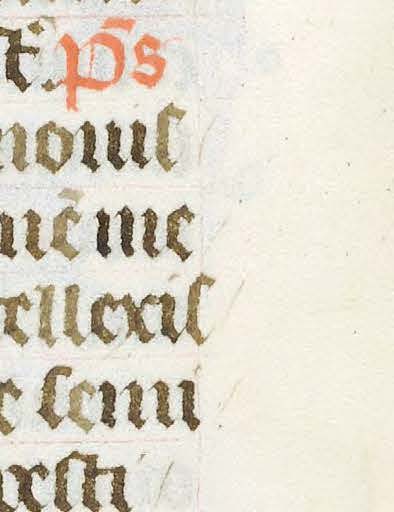 t. p̄s
nouiſ
nē me
tellexiſ
e ſemi
eſti